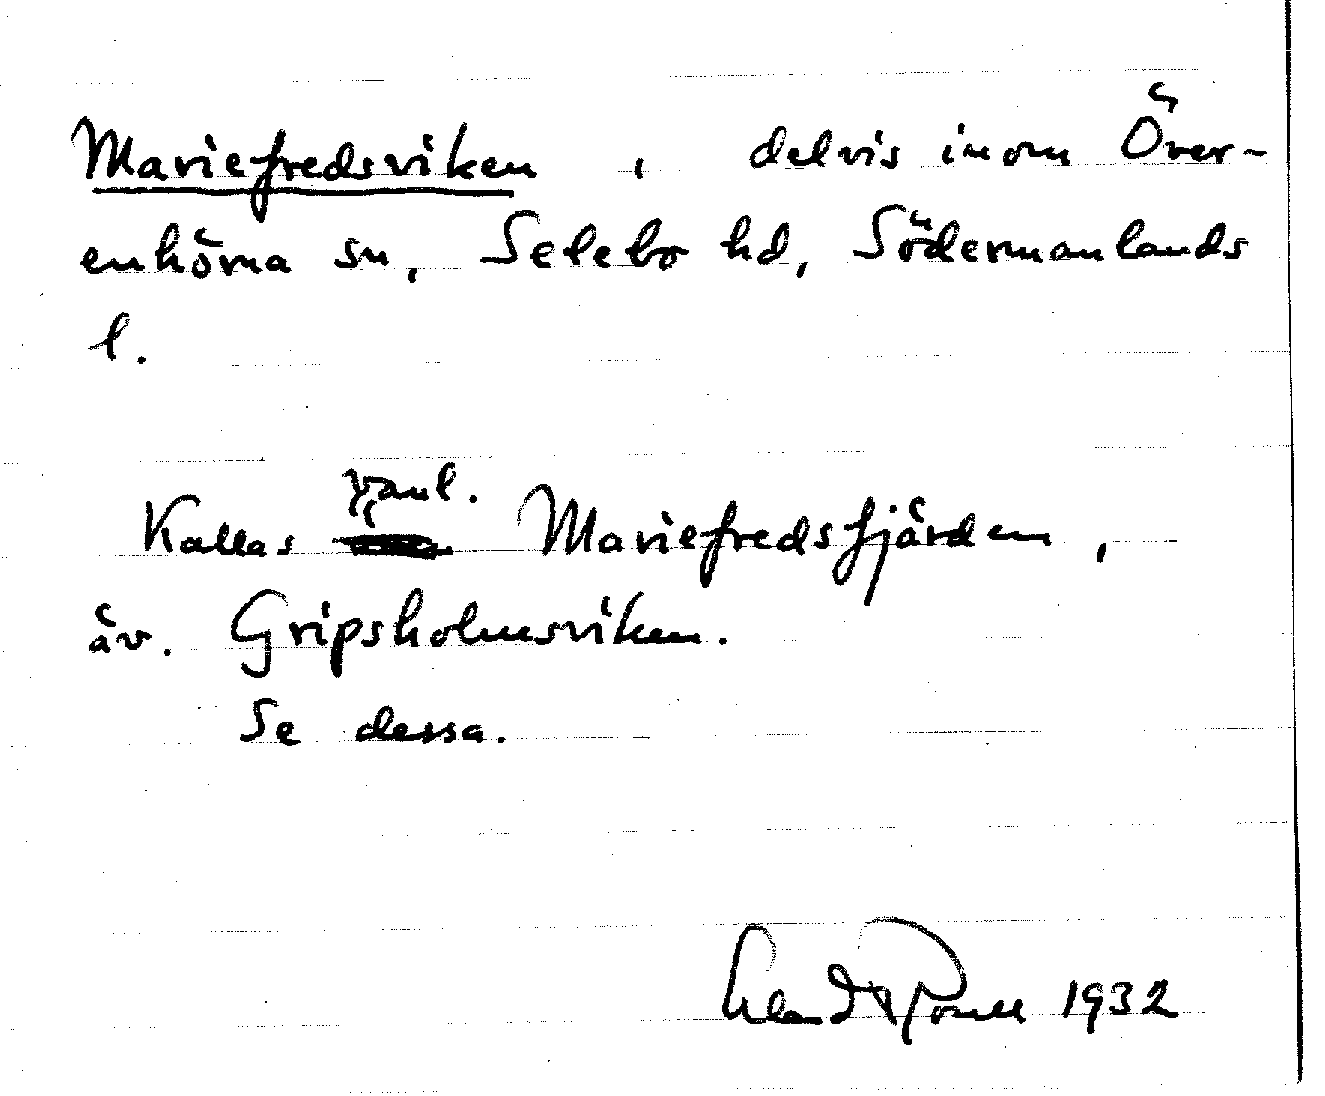 Mariefredsviken, delvis inom Över-
enhörna sn, Selebo hd, Södermanlands
l.
Kallas vanl. Mariefredsfjärden,
äv. Gripsholmsviken.
Se dessa.
1932